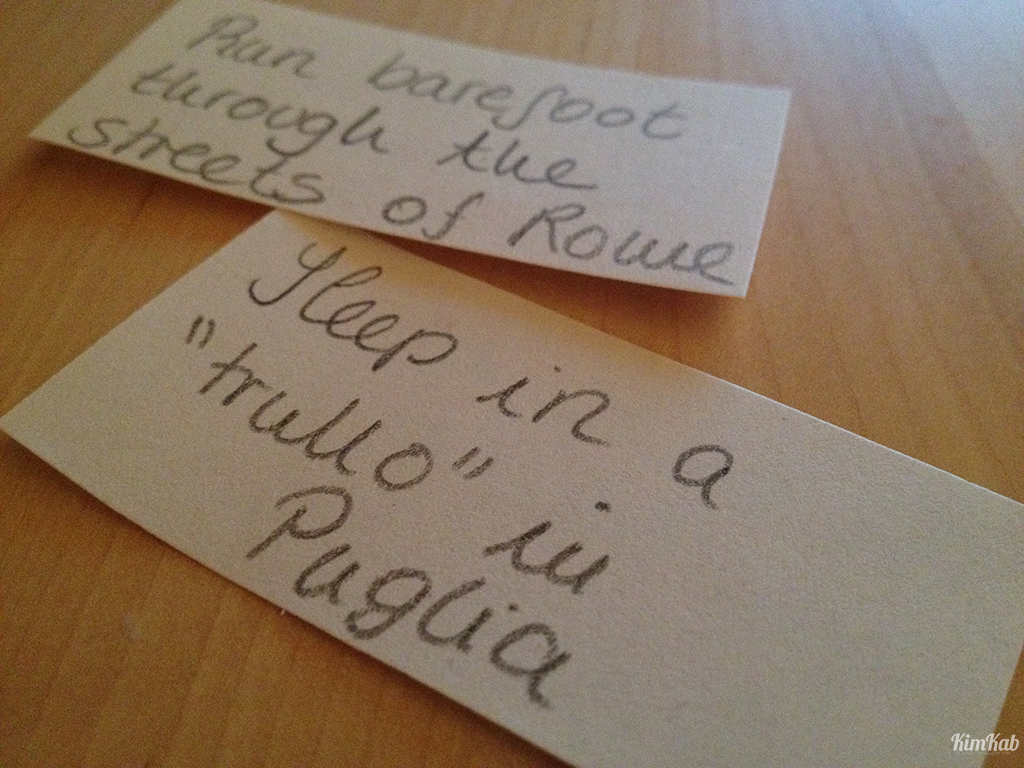 Run barefoot
through the
streets of Rome
Sleep in a
"trullo" in
Puglia
KimKab